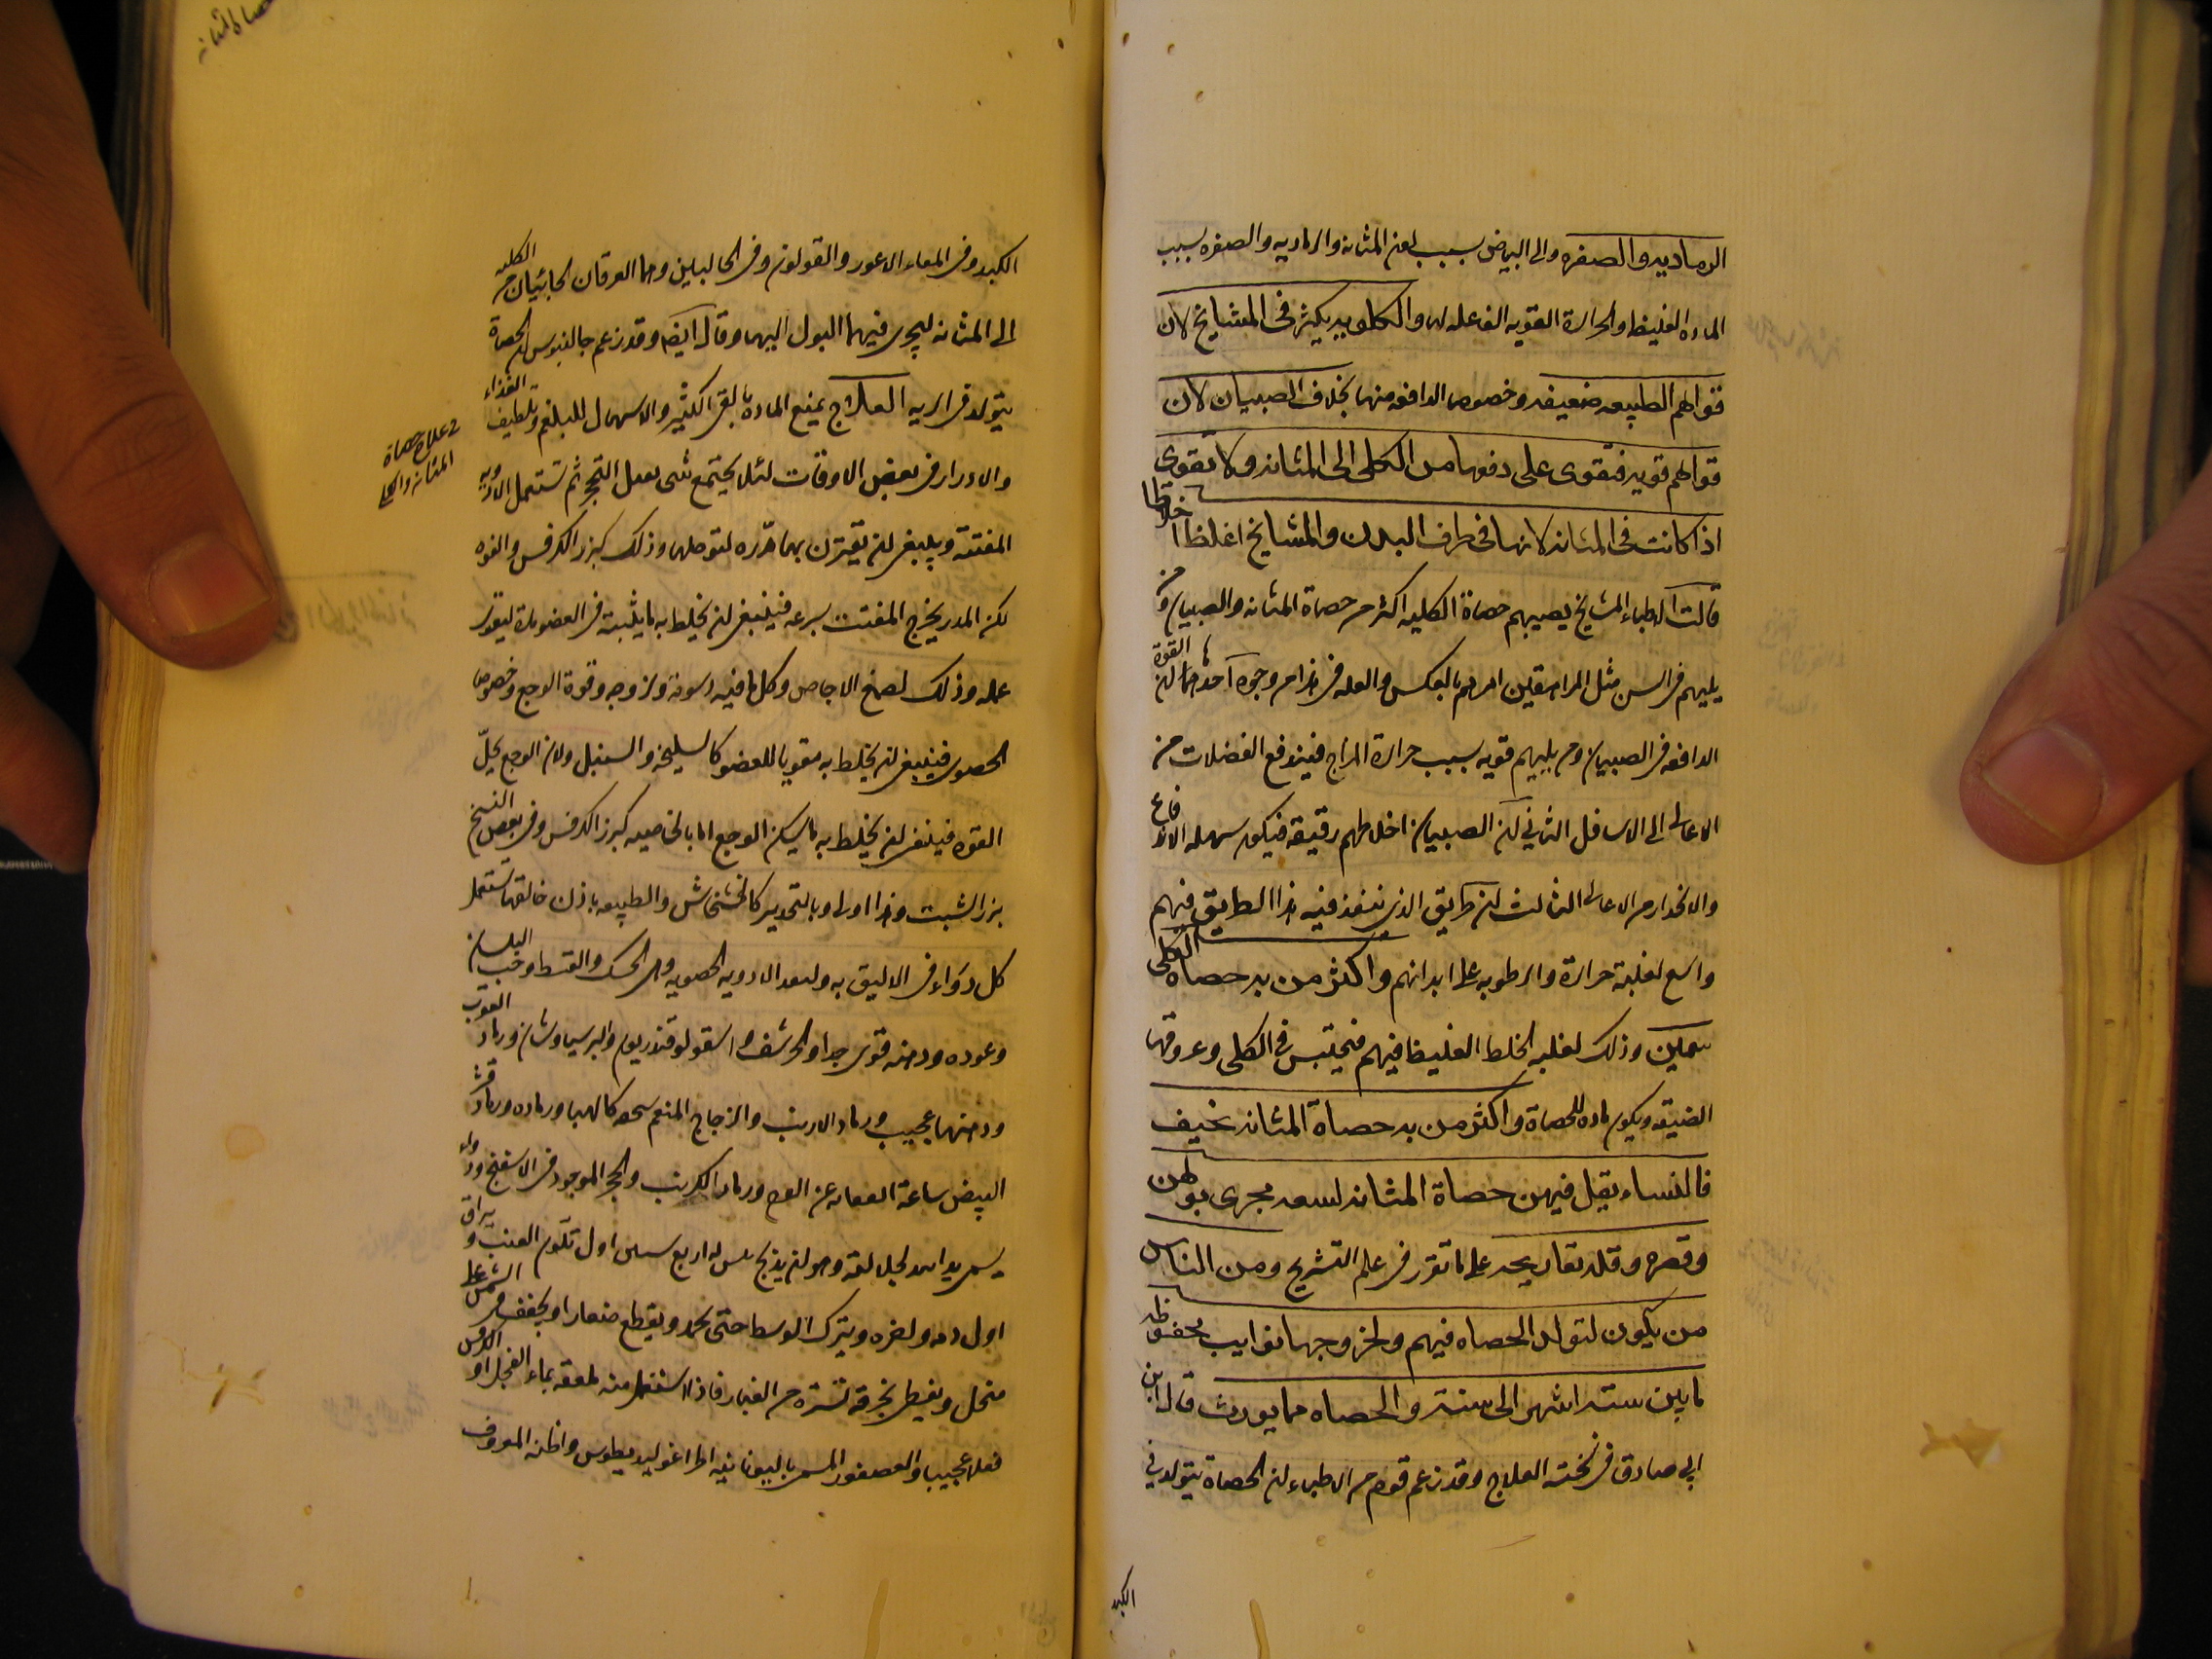 الرمادیه والصفره والی البیاض سبب لعن المثانه والرمادیه والصفره بسبب
الماده الغلیظه والحرارة القویه الفاعله لها والکلویه یکثر فی المشایخ لان
قواهم الطبیعه ضعیفه وخصوص الدافعه منها بخلاف الصبیان لان
قواهم قویه فتقوی علی دفعها من الکلی الی المثانه ولا تقوی
اذا کانت فی المثانه لانها فی طرف البدن والمشایخ اغلظ اخلاطا
قالت الاطباء المشایخ یصیبهم حصاة الکلیه اکثر من حصاة المثانه والصبیان ومن
یلیهم فی السن مثل المراهقین امرهم بالعکس والعله فی هذا من وجوه احدها ان القوة
الدافعه فی الصبیان ومن یلیهم قویه بسبب حرارة المزاج فیندفع الفضلات من
الاعالی الی الاسافل الثانی ان الصبیان اخلاطهم رقیقه فیکون سهله الاندفاع
والانحدار من الاعالی الثالث ان طریق الذی ینفذ فیه هذا الطریق فیهم
واسع لغلبة حرارة والرطوبه علی ابدانهم واکثر من به حصاة الکلی
سمین وذلک لغلبه الخلط الغلیظ فیهم فیحتبس فی الکلی وعروقها
الضیقه ویکون ماده للحصاة واکثر من به حصاة المثانه نحیف
فالنساء یقل فیهن حصاة المثانه لسعه مجری بولهن
وقصره وقله تعاریجه علی ما تقرر فی علم التشریح ومن الناس
من یکون لتولد الحصاه فیهم ولخروجها نوایب محفوظه
ما بین ستة اشهر الی سنة والحصاه مما یورث قال ابن
ابی صادق فی نخبه العلاج وقد زعم قوم من الاطباء ان الحصاة یتولد فی
الکبد
الکبد وفی المعاء الاعور والقولون وفی الحالبین وهما العرقان الجائیان من الکلیه
الی المثانه لیجری فیهما البول الیها وقال ایضا وقد زعم جالینوس ان الحصاة
یتولد فی الریه العلاج یمنع الماده بالقئ الکثیر والاسهال للبلغم وتلطیف الغذاء
والادرار فی بعض الاوقات لئلا یجتمع شئ یعمل التحجر ثم تستعمل الادویه
المفتته وینبغی ان یقترن بها مدره لتوصلها وذلک کبزر الکرفس والفوه
لکن المدر یخرج المفتت بسرعه فینبغی ان یخلط به ما یثبته فی العضو مدة لیقوی
عمله وذلک لصمغ الاجاص وکل ما فیه دسومة ولزوجه وقوة الوجع وخصوص
الحصوی فینبغی ان یخلط به مقویا للعضو کالسلیخه والسنبل ولان الوجع یحلّ
القوه فینبغی ان یخلط به ما یسکن الوجع اما بالخاصیه کبزر الکرفس وفی بعض النسخ
بزر الشبت وهذا اولی وبالتخدیر کالخشخاش والطبیعه باذن خالقها تستعمل
کل دواء فی الالیق به ولنعد الادویه الحصویه وهی الحسک والقسط وحب البلسان
وعوده ودهنه قوی جدا والحرشف واسقولوقندریون والبرسیاوشان ورماد العقرب
ودهنها عجیب ورماد الارنب والزجاج المنعم سحقه کالهبا ورماده ورماد قشر
البیض ساعة انفصاله عن الفرخ ورماد الکرنب والحجر الموجود فی الاسفنج ودواء
یسمی ید الله لجلالته وهو ان یذبح تیس له اربع سنین اول تکون العنب ویراق
اول دمه واخره ویترک الوسط حتی یجمد ویقطع صغارا ویجفف فی الشمس علی
منخل ویغطی بخرقه تستره من الغبار فاذا استعمل منه ملعقه بماء الفجل او الکرفس
فعلا عجیبا والعصفور المسمی بالیونانیه اطراغولیدیطوس واظنه المعروف
فی علاج حصاة
المثانه والکلی